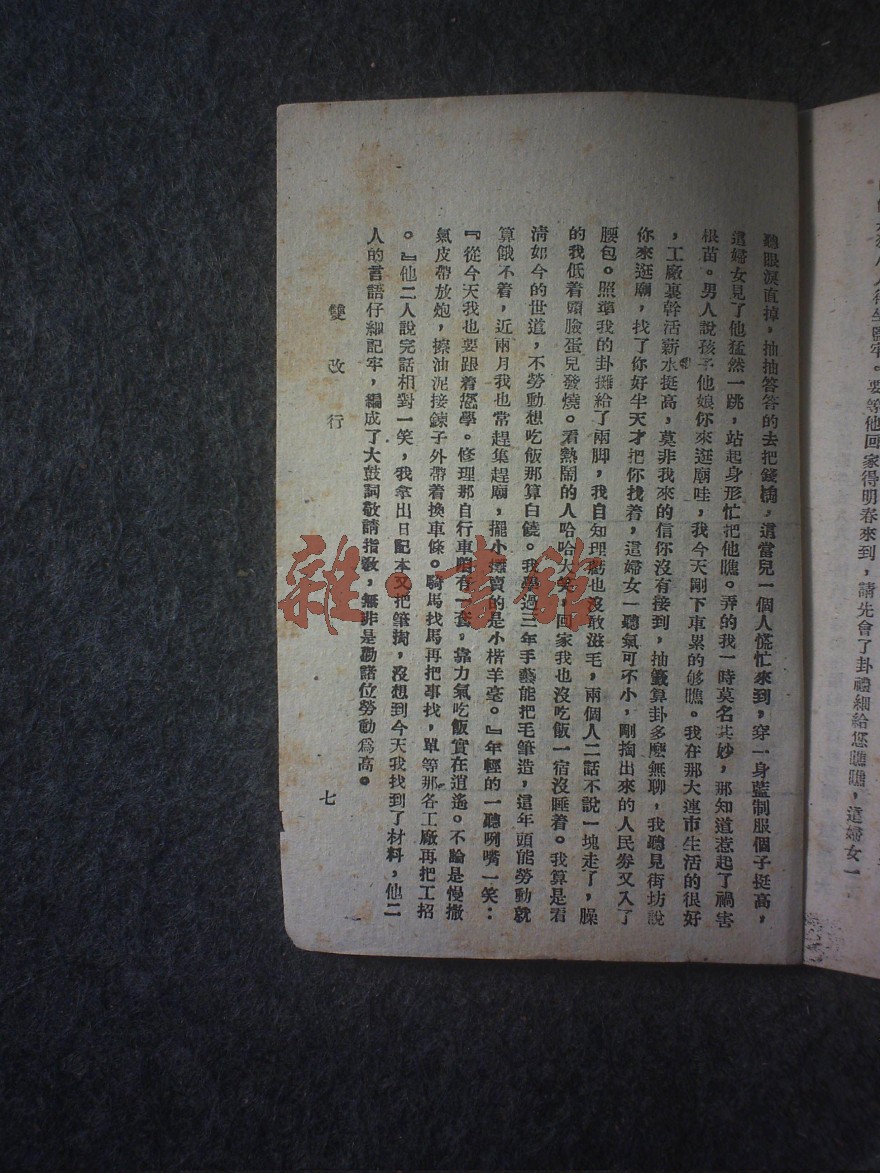 聽眼淚直掉，抽抽答答的去把錢掏，這當兒一個人慌忙來到，穿一身藍制服個子挺高，
這婦女見了他猛然一跳，站起身形忙把他瞧。弄的我一時莫名其妙，那知道惹起了禍害
根苗。男人說孩子他娘你來逛廟哇，我今天剛下車累的够瞧。我在那大連市生活的很好
，工廠裏幹活薪水挺高，莫非我來的信你沒有接到，抽籤算卦多麼無聊，我聽見街坊說
你來逛廟，找了你好半天才把你找着，這婦女一聽氣可不小，剛掏出來的人民券又入了
腰包。照準我的卦攤給了兩脚，我自知理虧也沒敢滋毛，兩個人二話不說一塊走了，臊
的我低着頭臉蛋兒發燒。看熱鬧的人哈哈大笑，回家我也沒吃飯一宿沒睡着。我算是看
清如今的世道，不勞動想吃飯那算白饒。我學過三年手藝能把毛筆造，這年頭能勞動就
算餓不着，近兩月我也常趕集趕廟，擺小攤賣的是小楷羊毫。』年輕的一聽咧嘴一笑：
『從今天我也要跟着您學。修理那自行車咱有一套，靠力氣吃飯實在逍遙。不論是慢撒
氣皮帶放炮，擦油泥接鍊子外帶着換車條。騎馬找馬再把事找，單等那各工廠再把工招
。』他二人說完話相對一笑，我拿出日記本又把筆掏，沒想到今天我找到了材料，他二
人的言語仔細記牢，編成了大鼓詞敬請指教，無非是勸諸位勞動爲高。
雙改行
七
人得坐監牢。要等他回家得明春來到，請先會了卦禮細給您瞧瞧，這婦女一
雜·書館